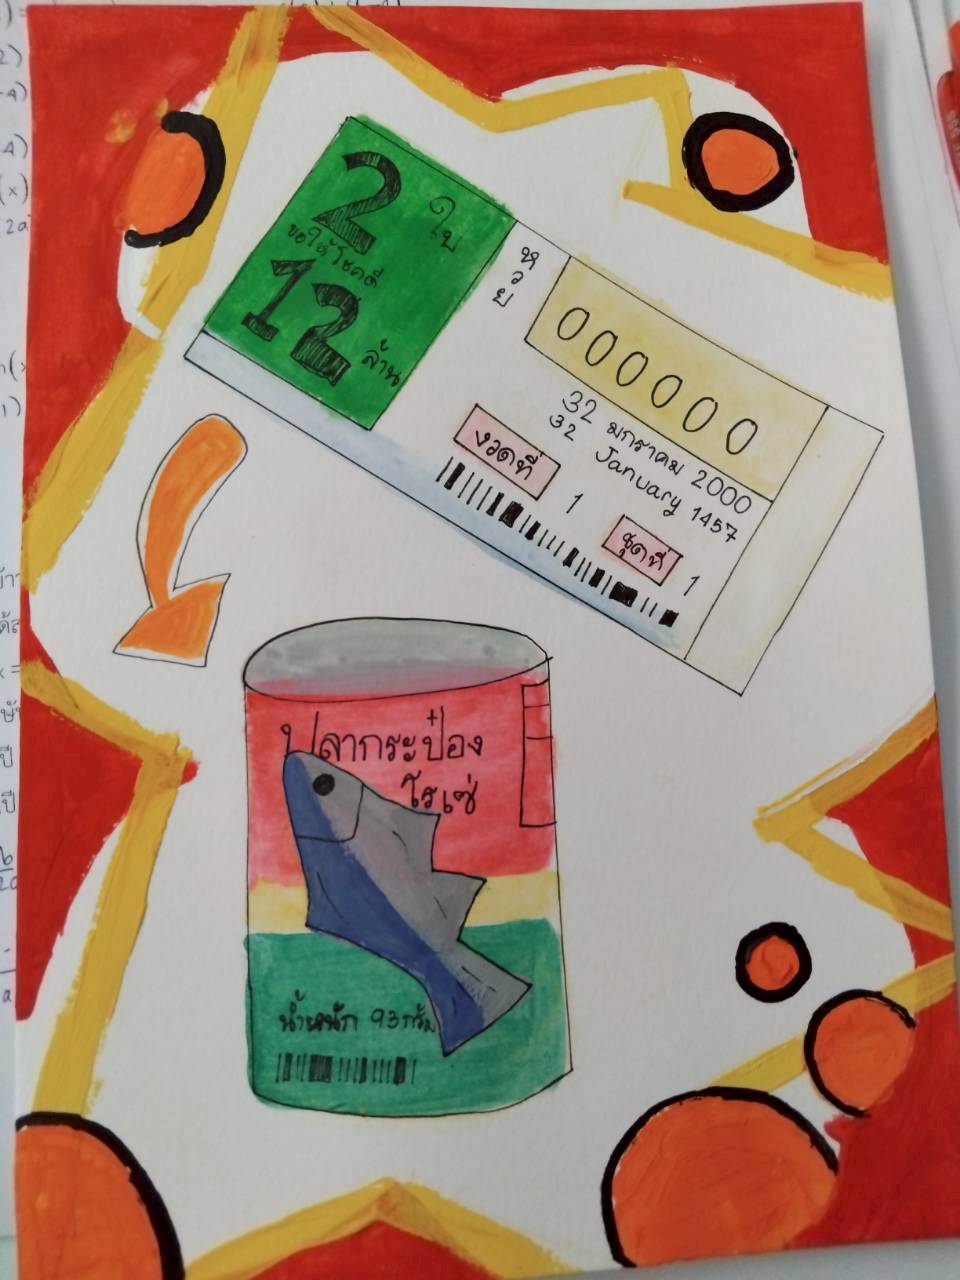 2 ใบ
ขอให้โชคดี
12 ล้าน
หวย
000000
32 มกราคม 2000
32 January 1457
งวดที่ 1
ชุดที่ 1
ปลากระป๋อง
โรเซ่
น้ำหนัก 93 กรัม